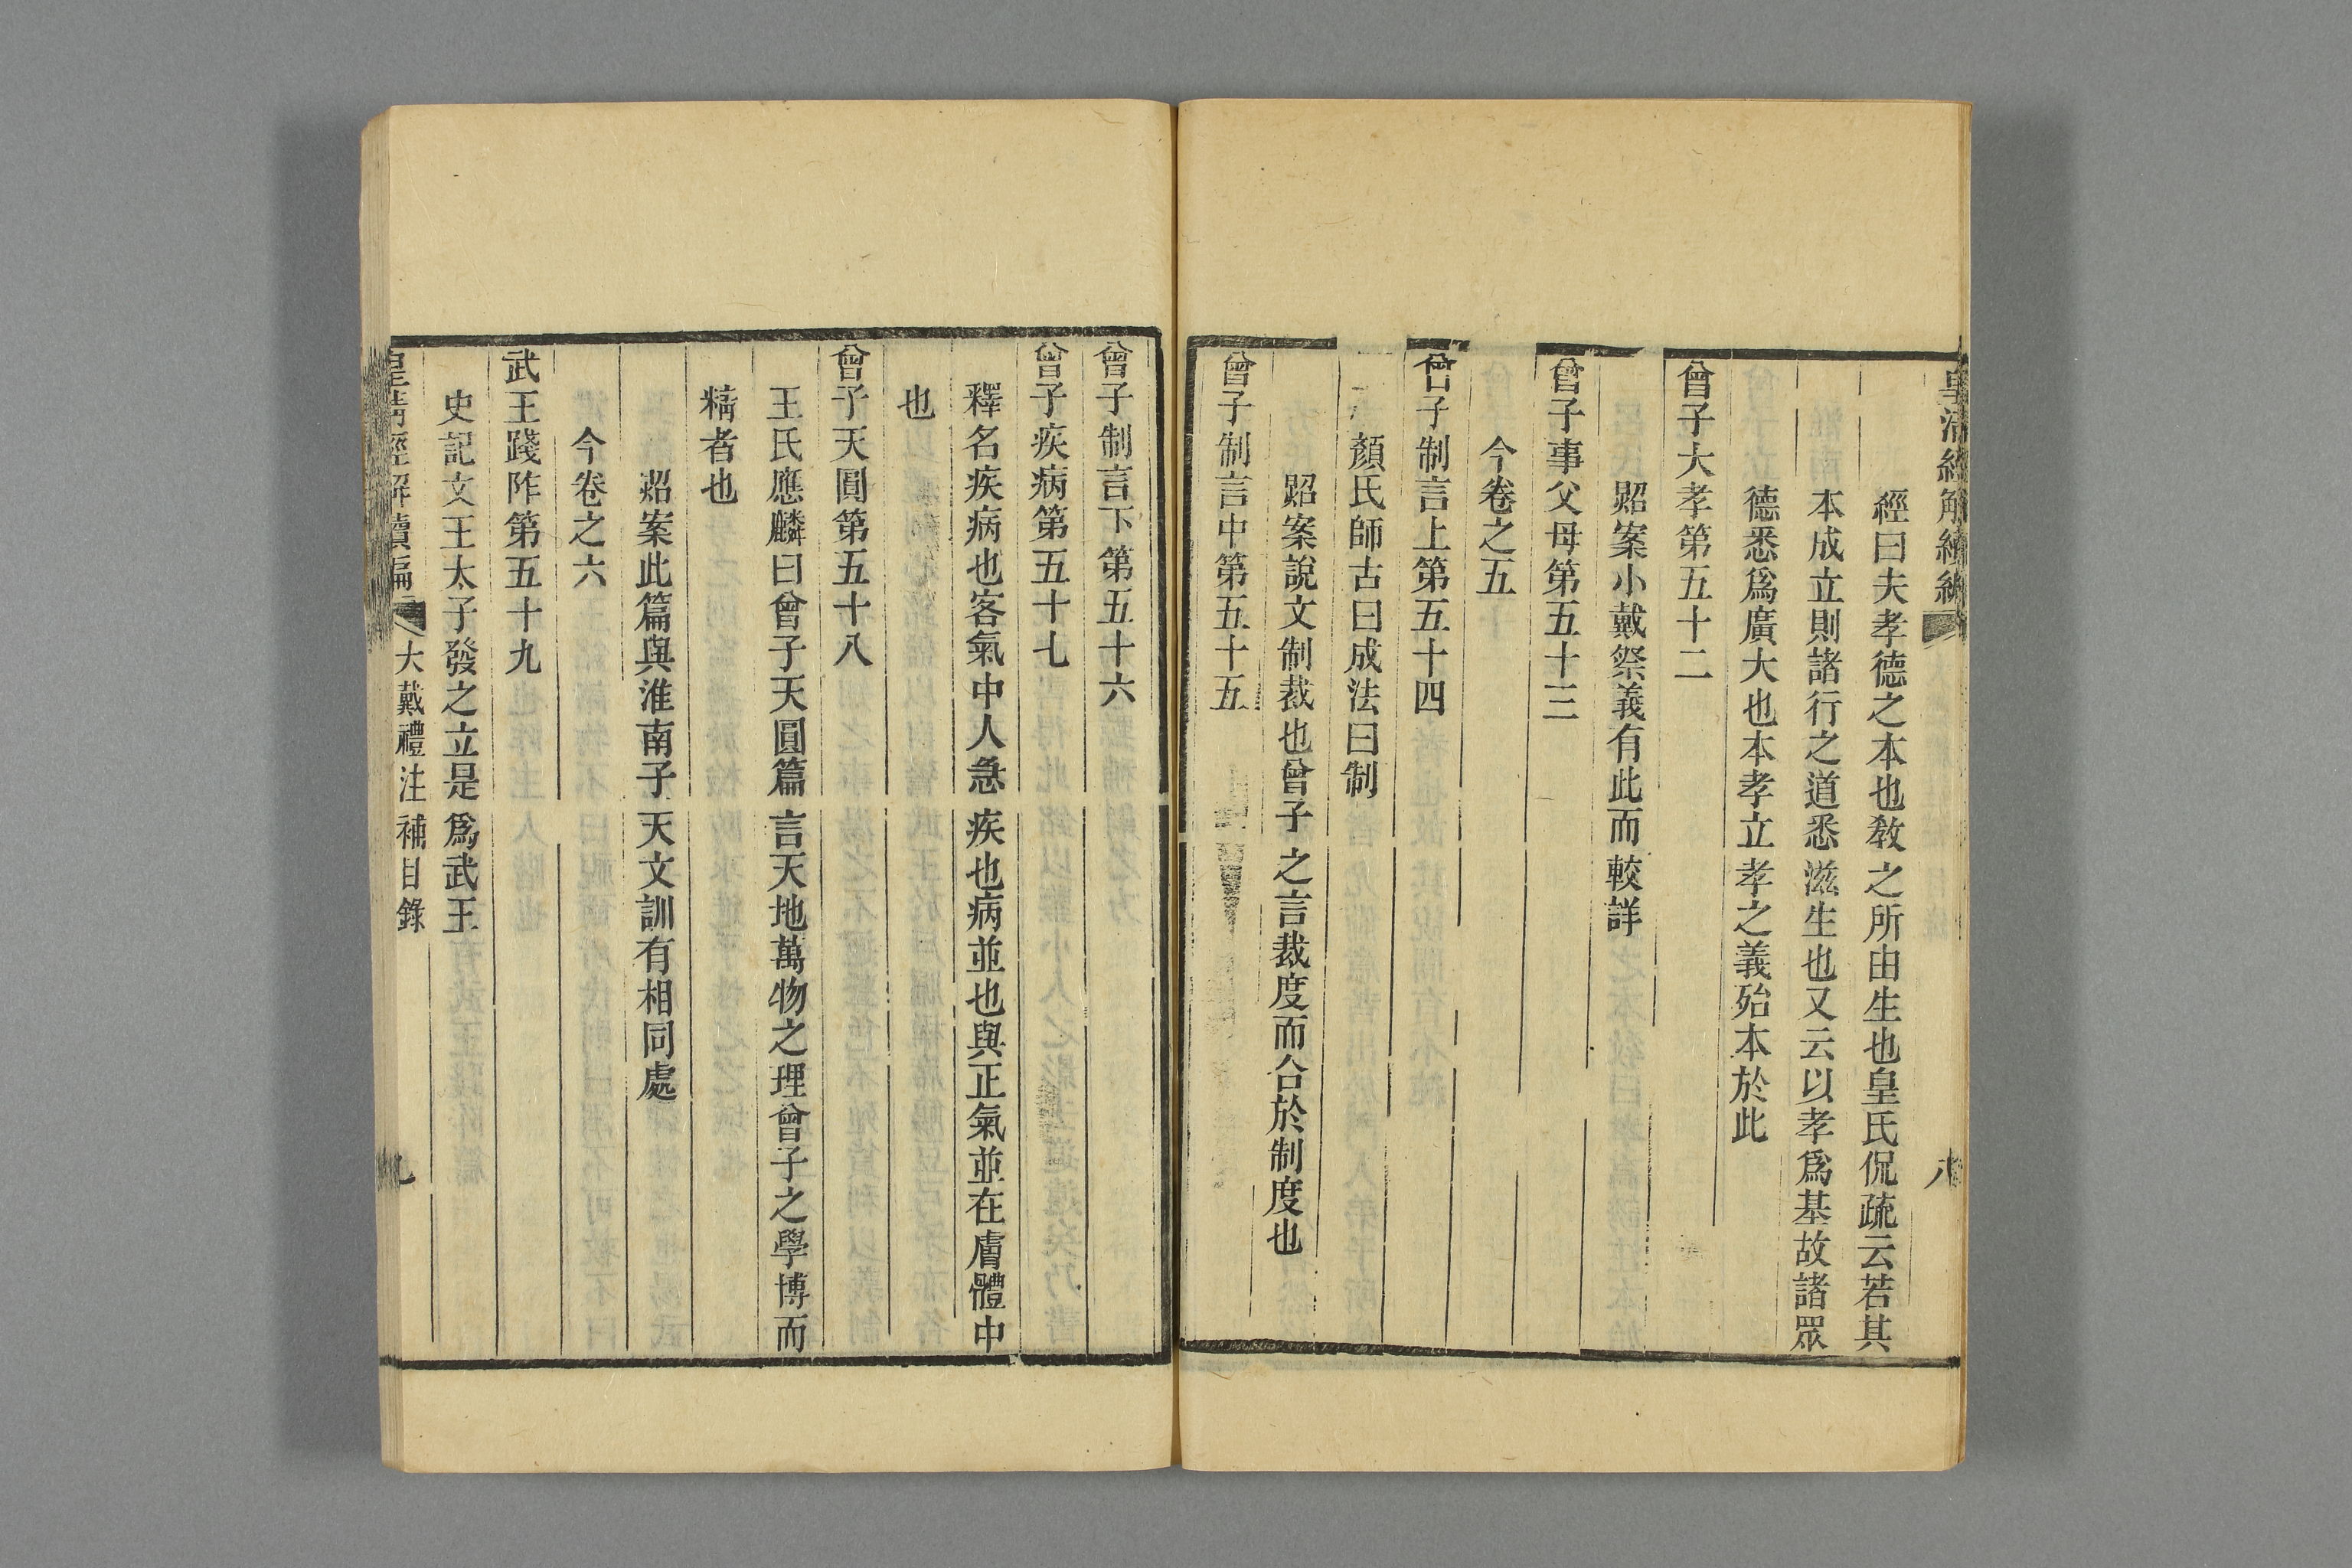 皇清經解續編
八
經曰夫孝德之本也敎之所由生也皇氏侃疏云若其
本成立則諸行之道悉滋生也又云以孝爲基故諸眾
德悉爲廣大也本孝立孝之義殆本於此
曾子大孝第五十二
炤案小戴祭義有此而較詳
曾子事父母第五十三
今卷之五
曾子制言上第五十四
顏氏師古曰成法曰制
炤案說文制裁也曾子之言裁度而合於制度也
曾子制言中第五十五
曾子制言下第五十六
曾子疾病第五十七
釋名疾病也客氣中人急疾也病並也與正氣並在膚體中
也
曾子天圓第五十八
王氏應麟曰曾子天圓篇言天地萬物之理曾子之學博而
精者也
炤案此篇與淮南子天文訓有相同處
今卷之六
武王踐阼第五十九
史記文王太子發之立是爲武王
皇清經解續編 大戴禮注補目錄
九